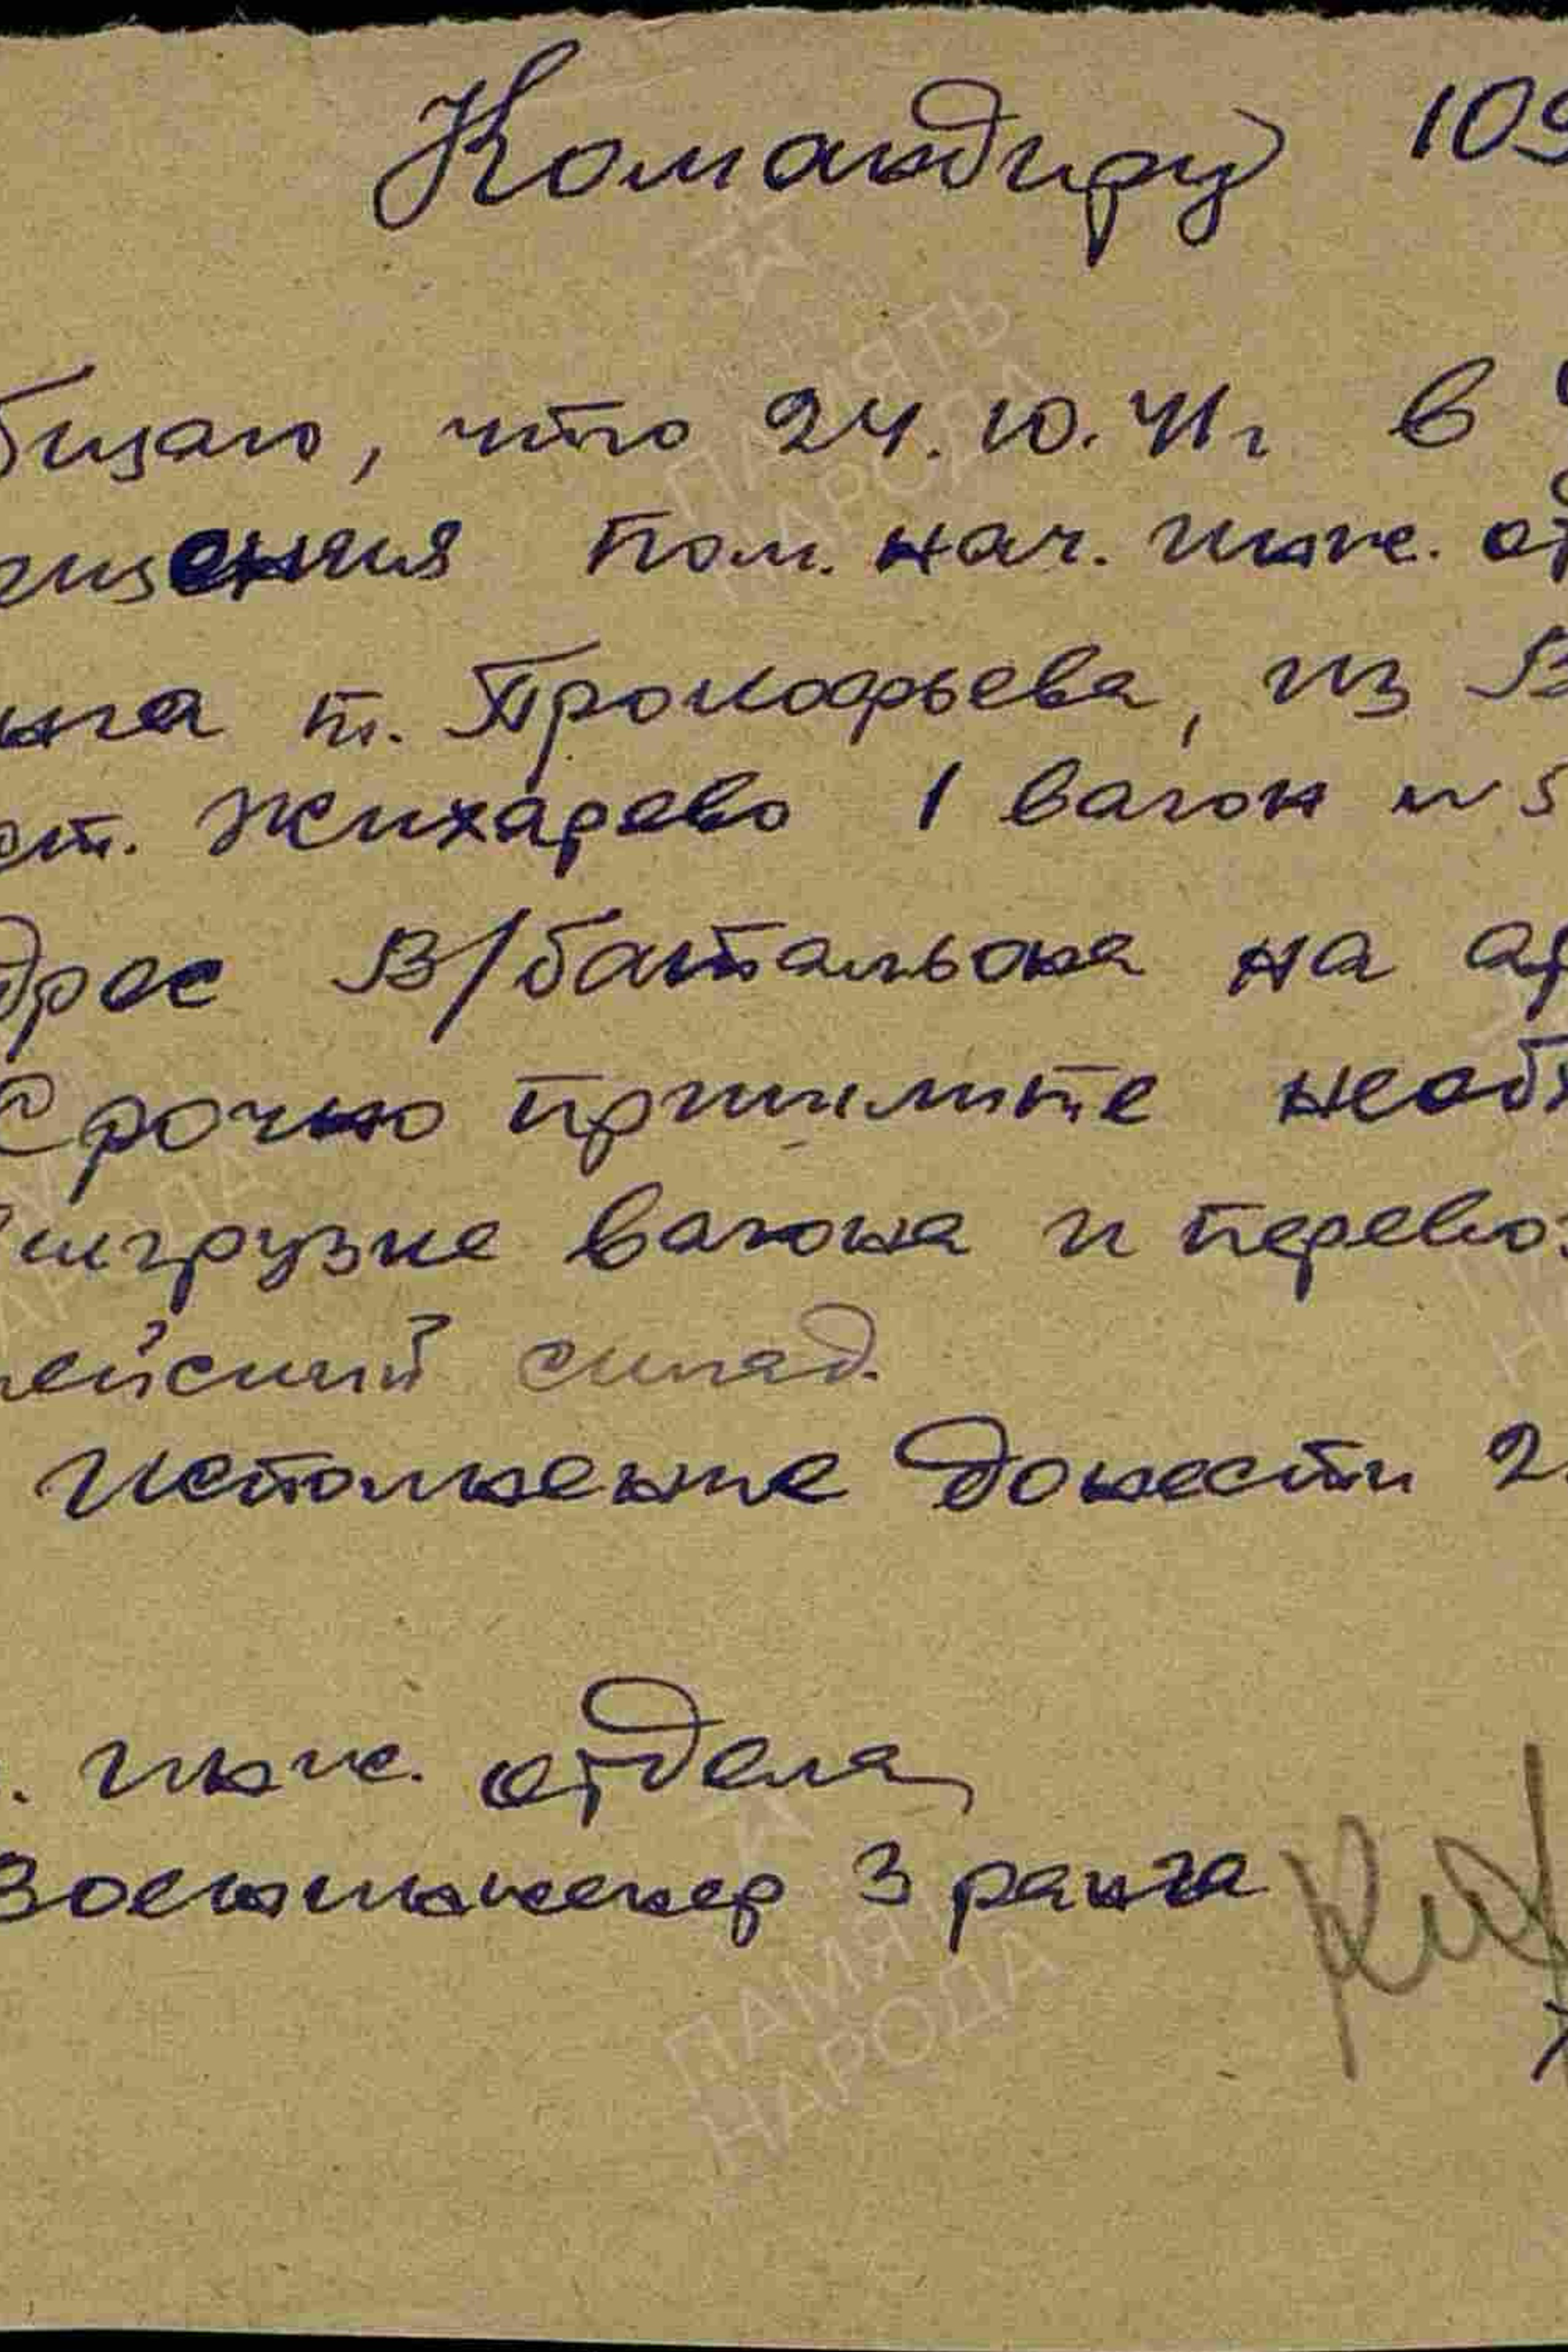 Командиру 109
бщаю, что 24.10.41г в
ращения пом. нач. инж. от
нга т. Прокофьева, из В
ст. Жихарево 1 вагон № 5
дрес В/батальона на ар
Срочно примите необх
выгрузке вагона и перевоз
мейский склад.
Исполнение донести 2
. инж. отдела
Военинженер 3 ранга
ПАМЯТЬ НАРОДА
ПАМЯТЬ НАРОДА